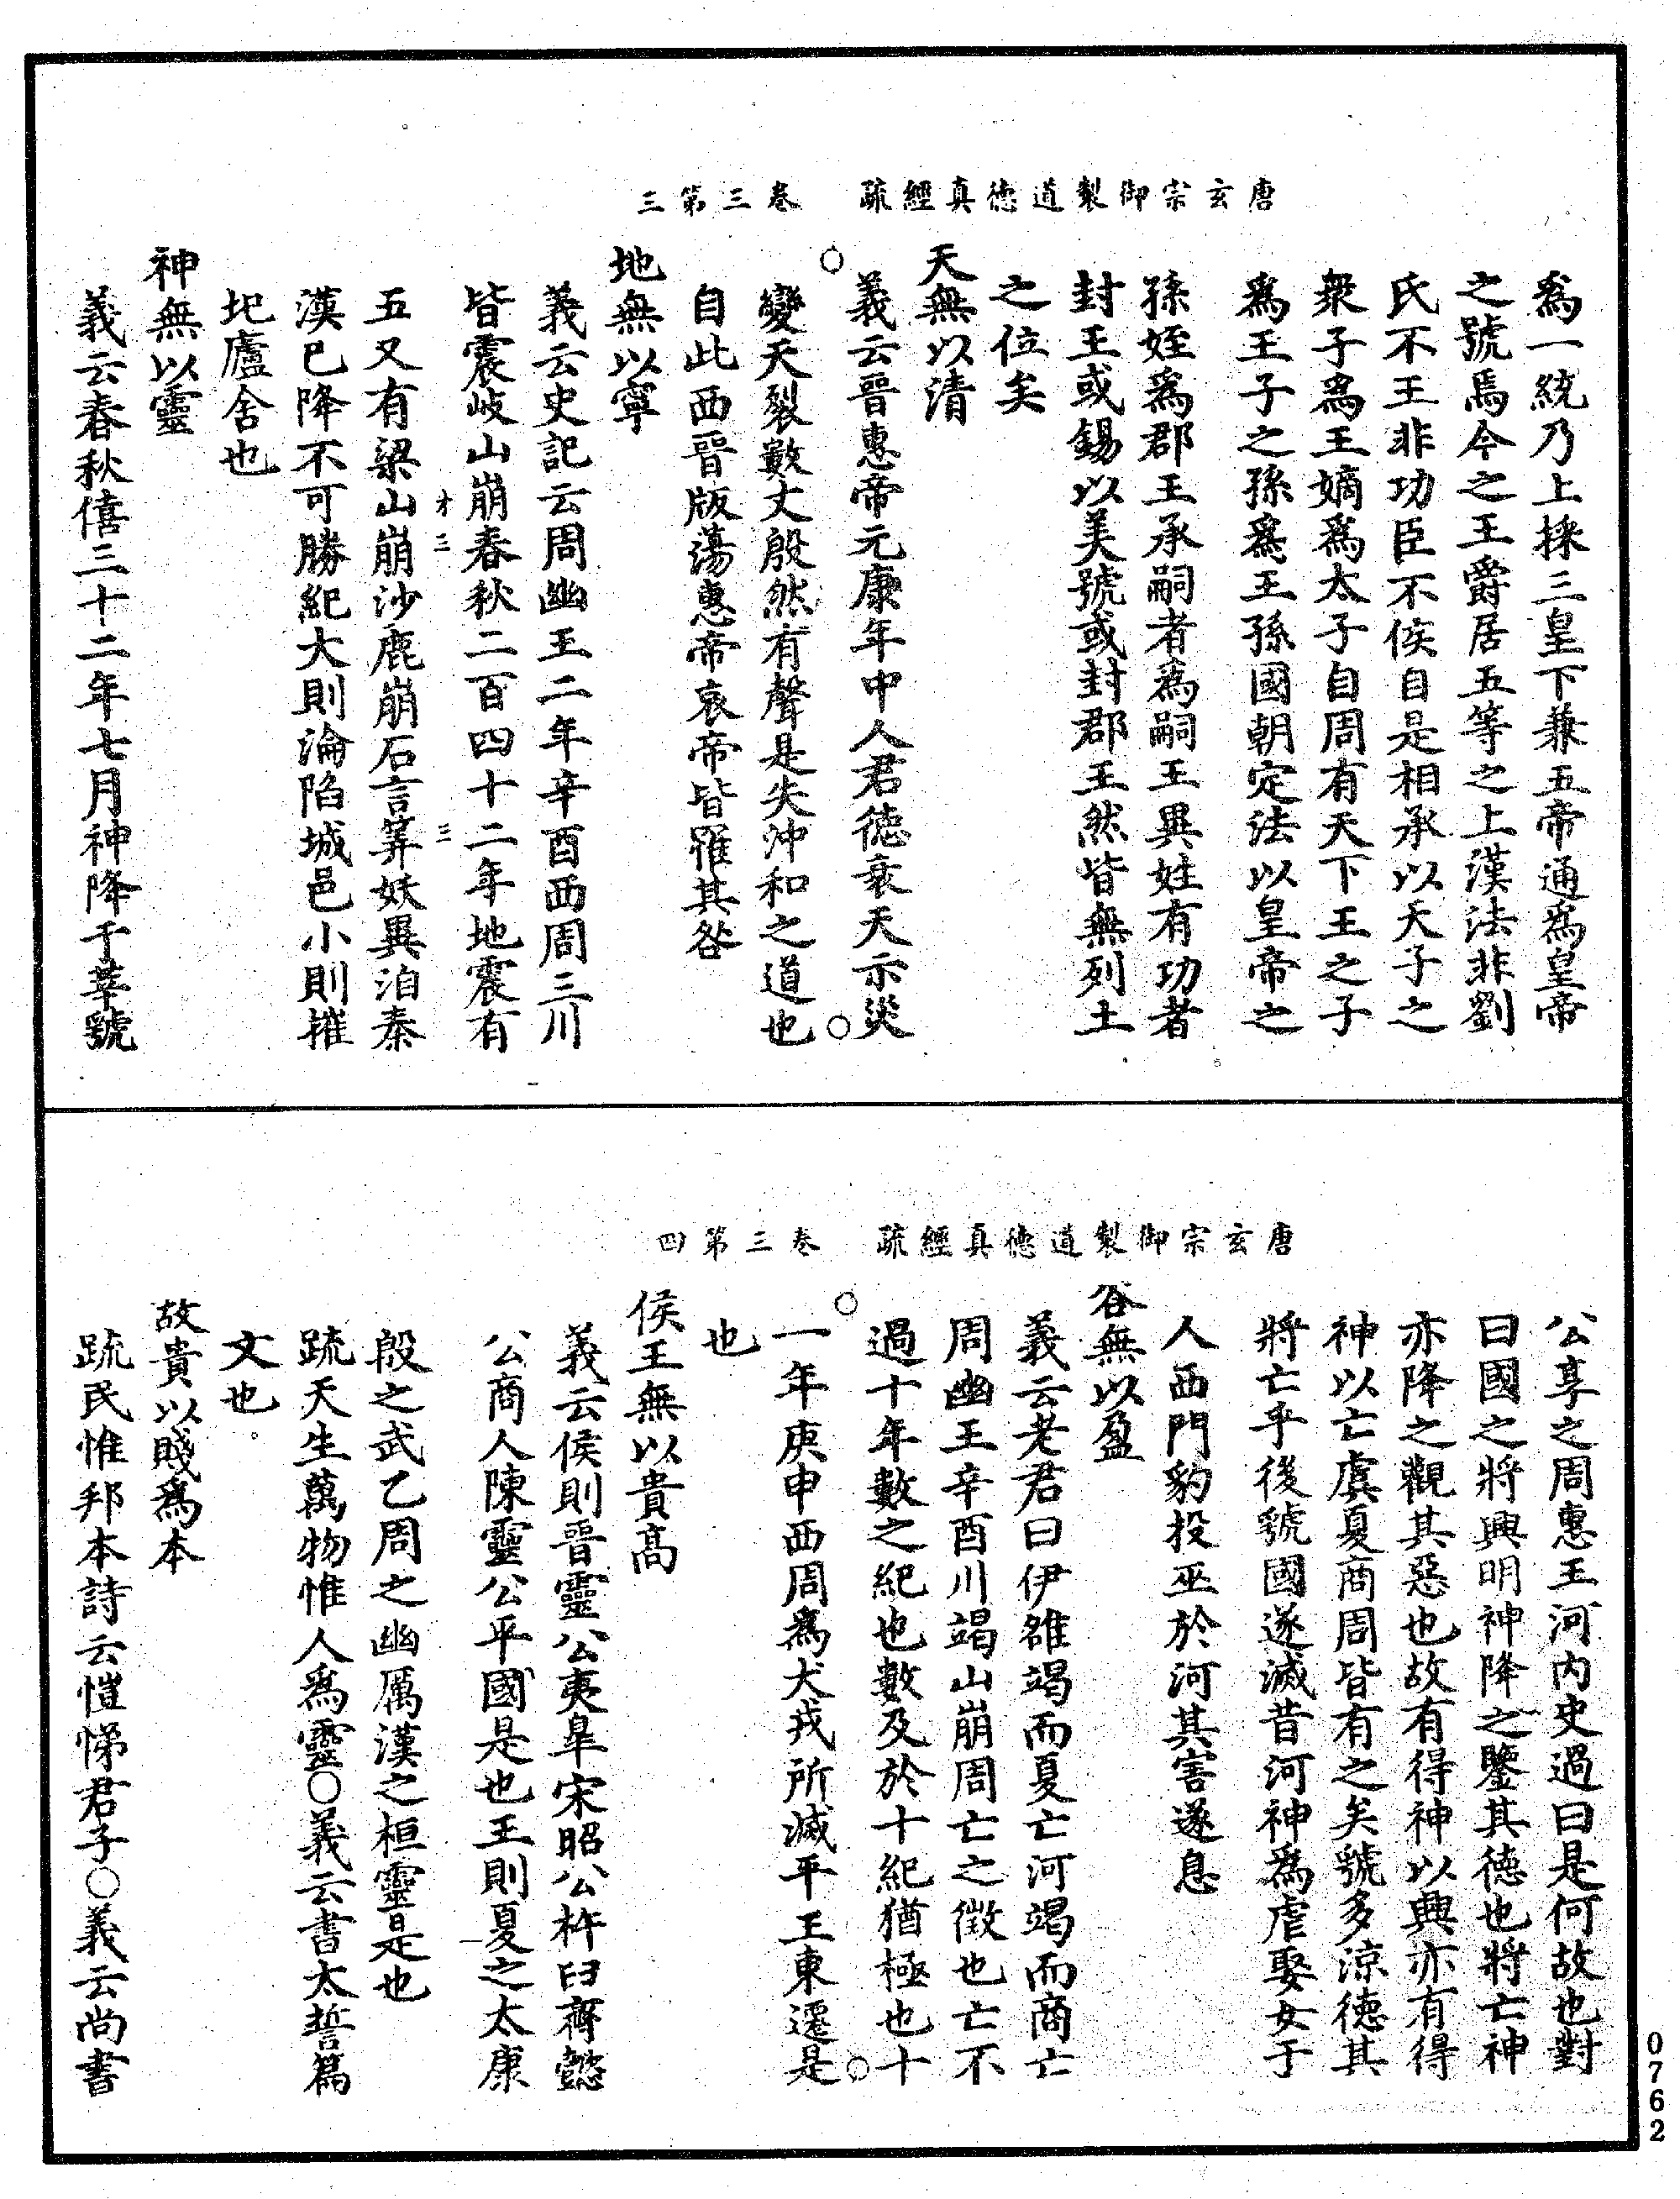 唐玄宗御製道德真經疏　卷三第三
爲一統乃上採三皇下兼五帝通爲皇帝
之號焉今之王爵居五等之上漢法非劉
氏不王非功臣不侯自是相承以天子之
衆子爲王嫡爲太子自周有天下王之子
爲王子之孫爲王孫國朝定法以皇帝之
孫姪爲郡王承嗣者爲嗣王異姓有功者
封王或錫以美號或封郡王然皆無列土
之位矣
天無以清
義云晉惠帝元康年中人君德衰天示災
變天裂數丈殷然有聲是失沖和之道也
自此西晉版蕩惠帝哀帝皆罹其咎
地無以寧
義云史記云周幽王二年辛酉西周三川
皆震岐山崩春秋二百四十二年地震有
才三　三
五又有梁山崩沙鹿崩石言等妖異洎秦
漢已降不可勝紀大則淪陷城邑小則摧
圮廬舍也
神無以靈
義云春秋僖三十二年七月神降于莘虢
唐玄宗御製道德真經疏　卷三第四
公享之周惠王河內史過曰是何故也對
曰國之將興明神降之鑒其德也將亡神
亦降之觀其惡也故有得神以興亦有得
神以亡虞夏商周皆有之矣虢多涼德其
將亡乎後虢國遂滅昔河神爲虐娶女于
人西門豹投巫於河其害遂息
谷無以盈
義云老君曰伊雒竭而夏亡河竭而商亡
周幽王辛酉川竭山崩周亡之徵也亡不
過十年數之紀也數及於十紀猶極也十
一年庚申西周爲犬戎所滅平王東遷是
也
侯王無以貴高
義云侯則晉靈公夷皐宋昭公杵臼齊懿
公商人陳靈公平國是也王則夏之太康
殷之武乙周之幽厲漢之桓靈是也
疏天生萬物惟人爲靈○義云書太誓篇
文也。
故貴以賤爲本
疏民惟邦本詩云愷悌君子○義云尚書
0762